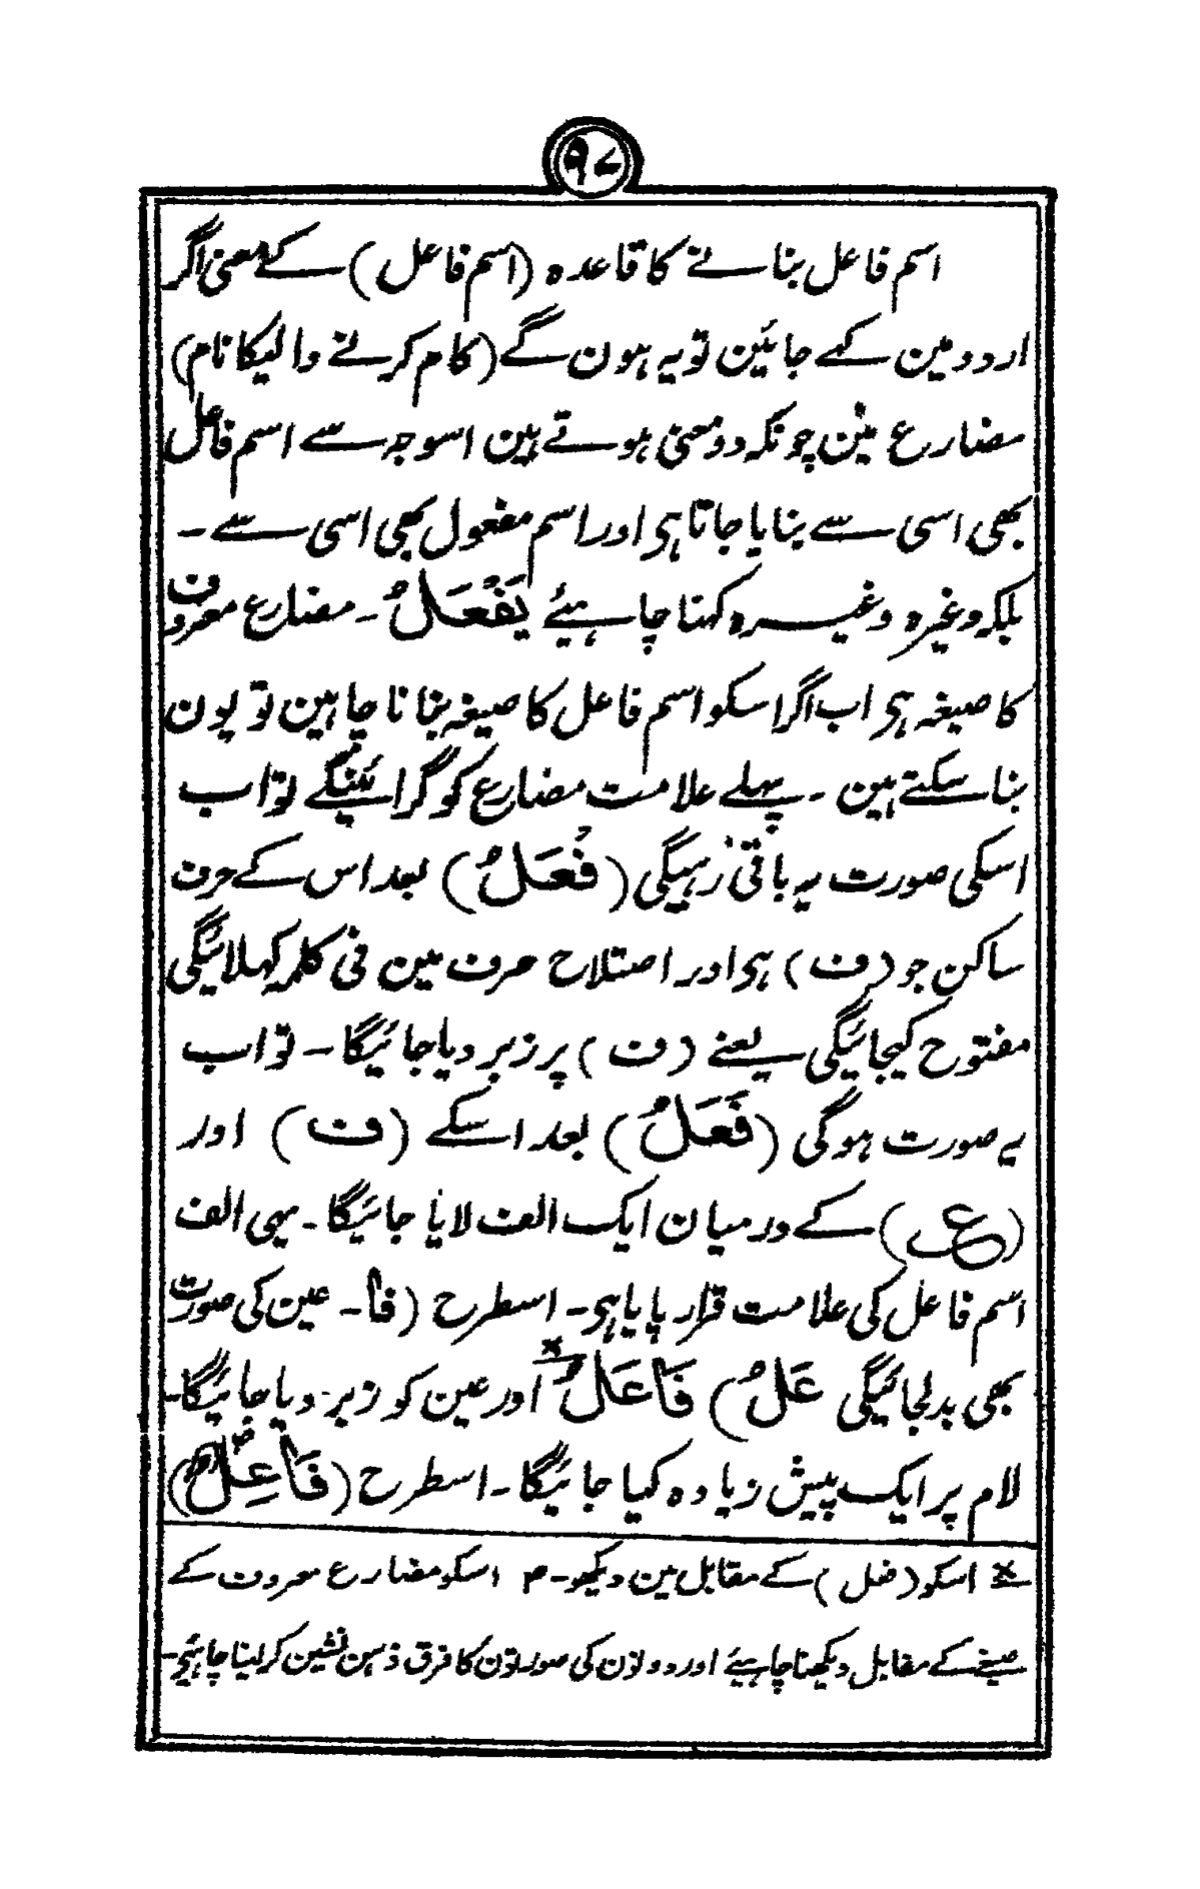 ۹۷
اسم فاعل بنانے کا قاعدہ (اسم فاعل) کے معنی اگر
اردو مین کہے جائین تو یہ ہون گے (کام کرنے والیکا نام)
مضارع مین چونکہ دو معنی ہوتے ہین اسوجہ سے اسم فاعل
بھی اسی سے بنایا جاتا ہی اور اسم مفعول بھی اسی سے ۔
بلکہ وغیرہ وغیرہ کہنا چاہیئے یَفْعَلُ ۔ مضارع معروف
کا صیغہ ہی اب اگر اسکو اسم فاعل کا صیغہ بنانا چاہین تو یون
بنا سکتے ہین ۔ پہلے علامت مضارع کو گرائینگے تو اب
اسکی صورت یہ باقی رہیگی (فْعَلُ) بعد اس کے حرف
ساکن جو (ف) ہی اور اصتلاح صرف مین فی کلمہ کہلائیگی
مفتوح کیجائیگی یعنے (ف) پر زبر دیا جائیگا ۔ تو اب
یہ صورت ہوگی (فَعَلُ) بعد اسکے (ف) اور
(ع) کے درمیان ایک الف لایا جائیگا ۔ یہی الف
اسم فاعل کی علامت قرار پایا ہی ۔ اسطرح (فا ۔ عین کی صورت
بھی بدلجائیگی عَلُ) فَاعَلُ اور عین کو زیر دیا جائیگا ۔
لام پر ایک پیش زیادہ کیا جائیگا ۔ اسطرح (فَاعِلٌ)
× اسکو (فعل) کے مقابل مین دیکھو ۔ ۱۲ اسکو مضارع معروف کے
صیغے کے مقابل دیکھنا چاہیئے اور دونون کی صورتون کا فرق ذہن نشین کرلینا چاہیئے ۔